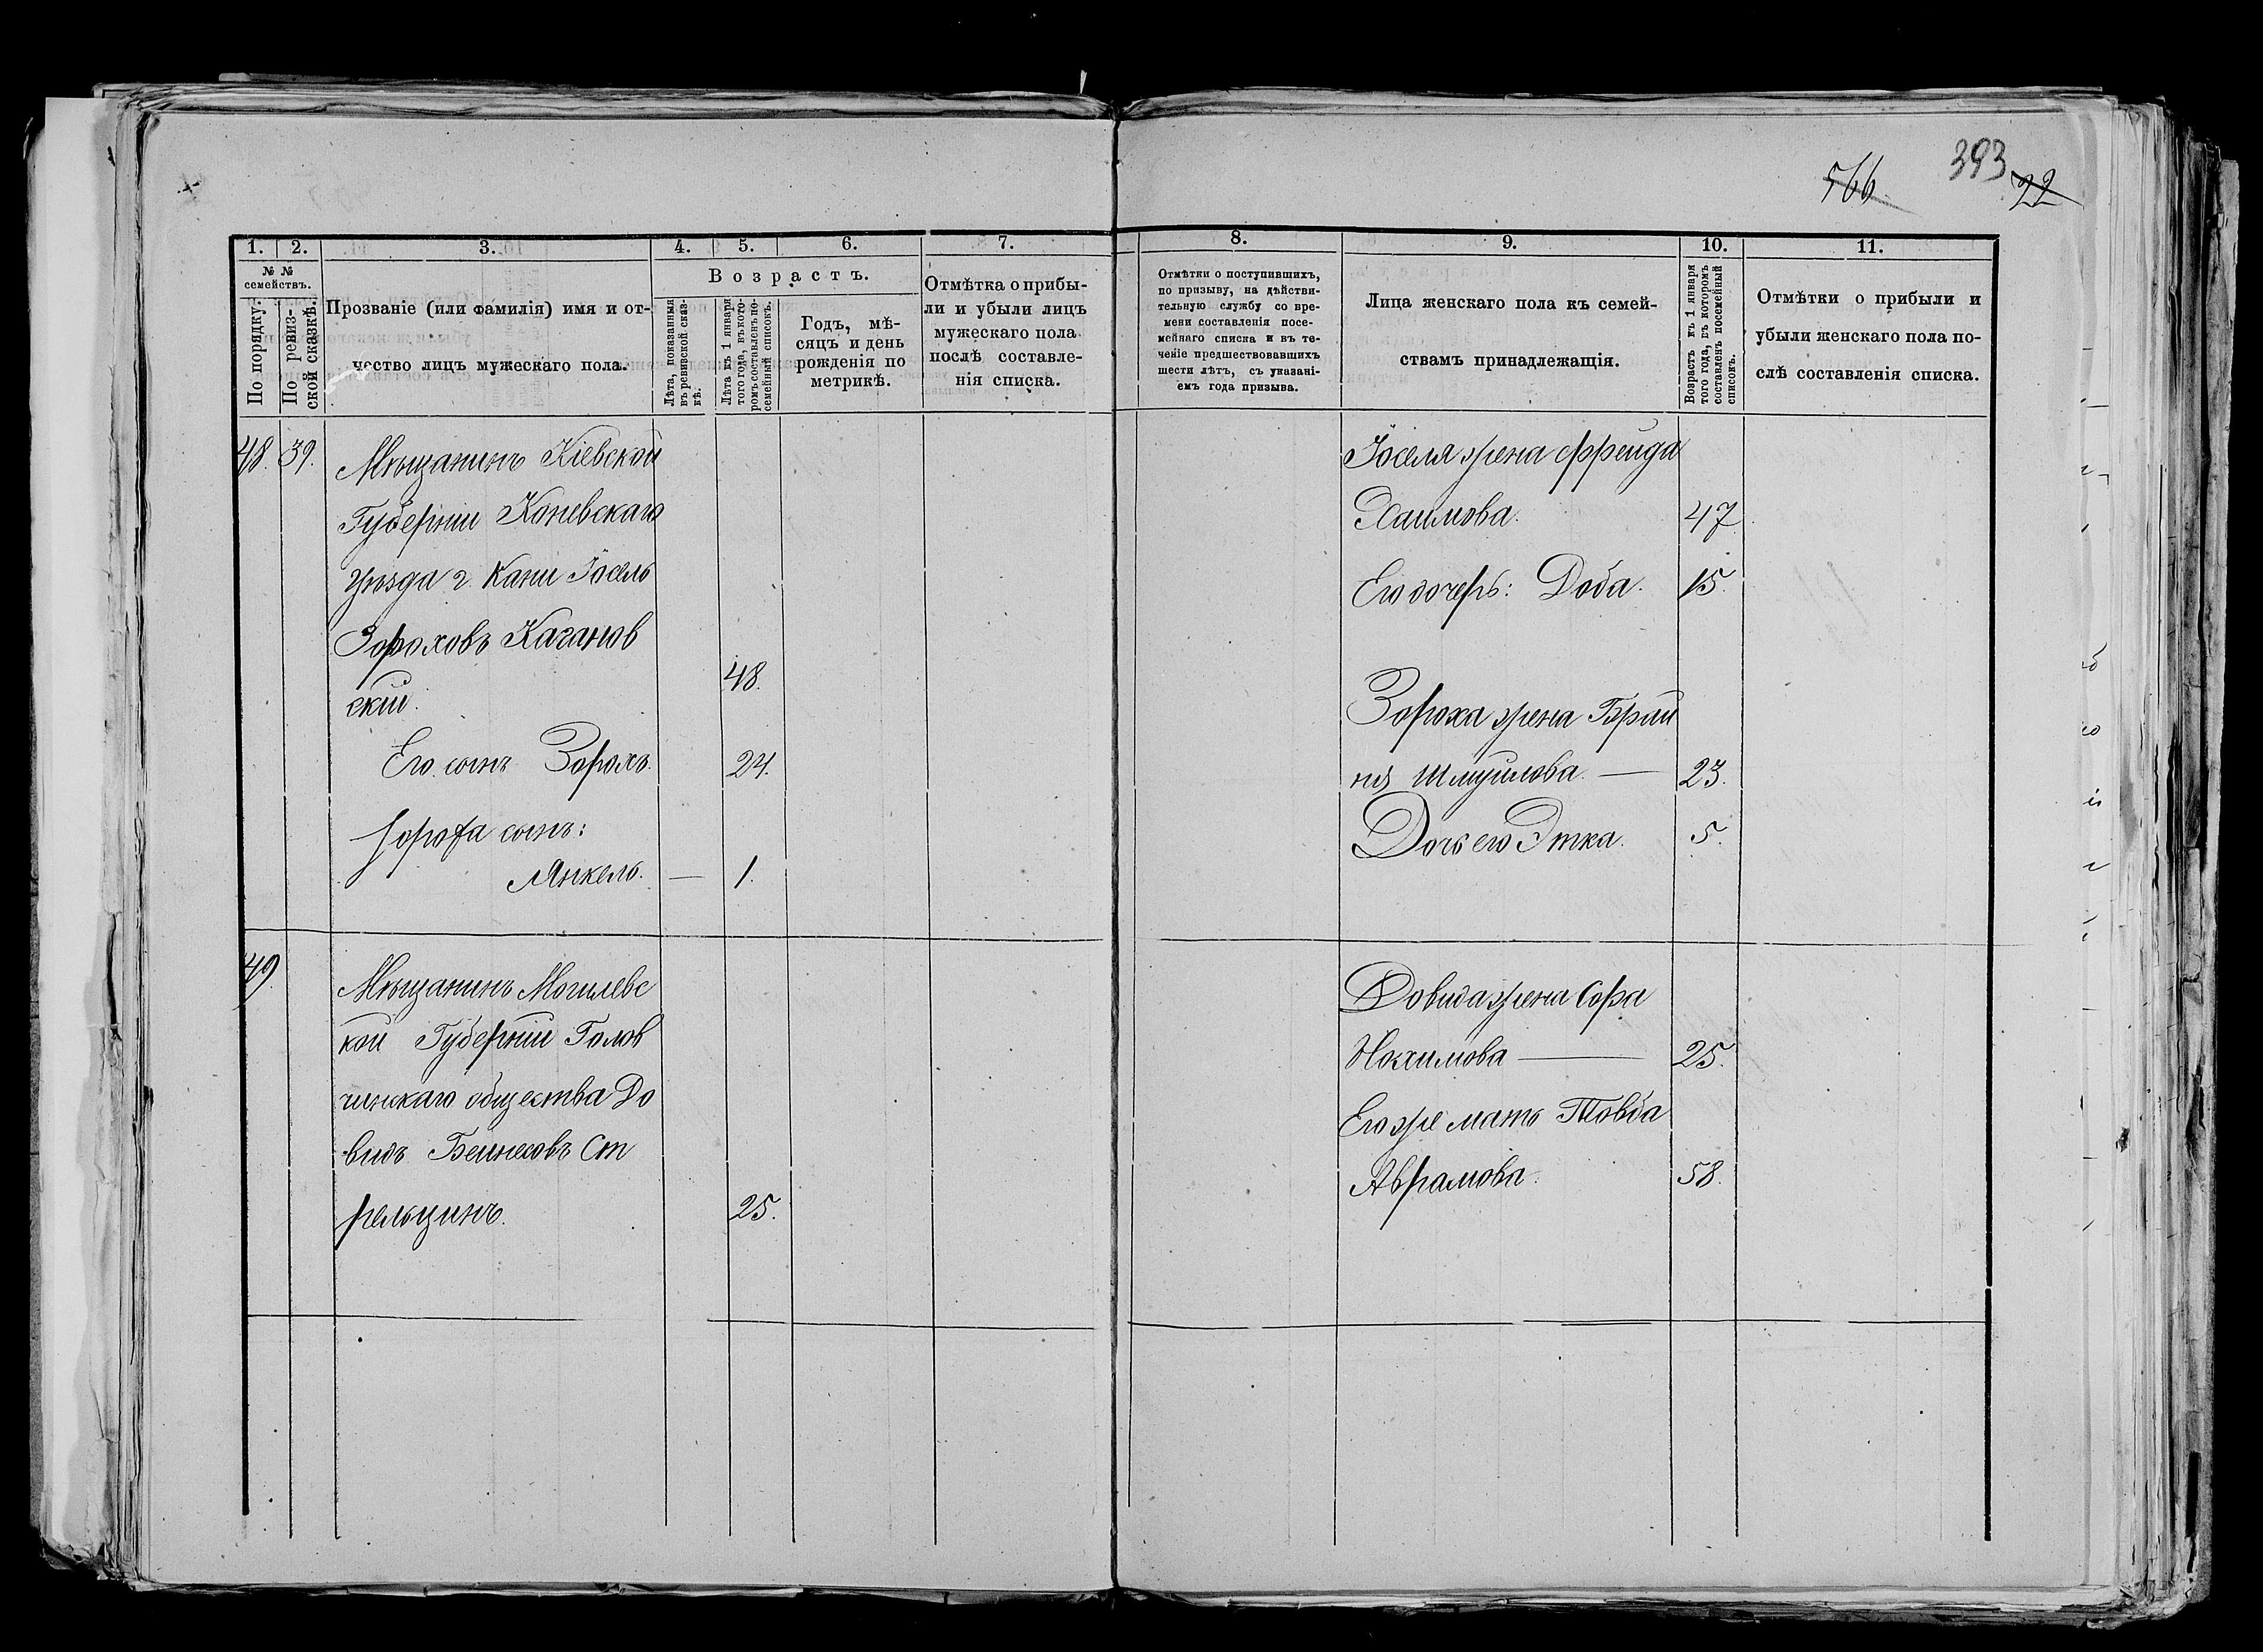 566
393
22
1.
2.
3.
4.
5.
6.
7.
№ №
семействъ.
По порядку.
По ревиз-
ской сказкѣ.
Прозваніе (или фамилія) имя и от-
чество лицъ мужескаго пола.
Возрастъ.
Лѣта, показанныя
въ ревизской сказ-
кѣ.
Лѣта къ 1 января
того года, въ кото-
ромъ составленъ по-
семейный списокъ.
Годъ, мѣ-
сяцъ и день
рожденія по
метрикѣ.
Отмѣтка о прибы-
ли и убыли лицъ
мужескаго пола
послѣ составле-
нія списка.
48. 39. Мѣщанинъ Кіевской
Губерніи Каневскаго
уѣзда г. Кани Іосель
Зороховъ Каганов
скій. 48.
Его сынъ Зорохъ. 24.
Зороха сынъ:
Янкель. — 1.
49. Мѣщанинъ Могилевс
кой Губерніи Голов
чинскаго общества До
видъ Бейнесовъ Ст
рельцинъ. 25.
8.
9.
10.
11.
Отмѣтки о поступившихъ,
по призыву, на дѣйстви-
тельную службу со вре-
мени составленія посе-
мейнаго списка и въ те-
ченіе предшествовавшихъ
шести лѣтъ, съ указані-
емъ года призыва.
Лица женскаго пола къ семей-
ствамъ принадлежащія.
Возрастъ къ 1 января
того года, въ которомъ
составленъ посемейный
списокъ.
Отмѣтки о прибыли и
убыли женскаго пола по-
слѣ составленія списка.
Іоселя жена Фрейда
Хаимова. 47
Его дочерь: Доба. 15.
Зороха жена Брай
на Шмуилова. — 23.
Дочь его Этка. 5.
Довида жена Сора
Нохимова — 25.
Его же мать Товба
Аврамова. 58.